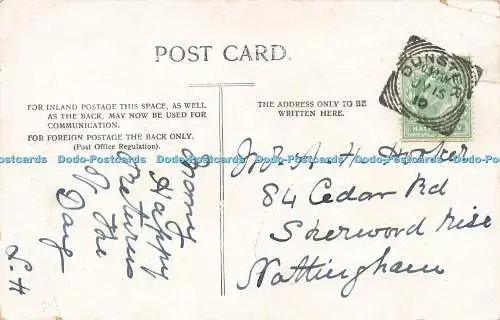 POST CARD.
FOR INLAND POSTAGE THIS SPACE, AS WELL
AS THE BACK, MAY NOW BE USED FOR
COMMUNICATION.
FOR FOREIGN POSTAGE THE BACK ONLY.
(Post Office Regulation).
THE ADDRESS ONLY TO BE
WRITTEN HERE.
DUNSTER
JY 15
10
Many
Happy
Returns
of the
Day
S.H
Mr A. H. Hooker
84 Cedar Rd
Sherwood Rise
Nottingham
Dodo-Postcards Dodo-Postcards Dodo-Postcards Dodo-Postcards Dodo-Postcards